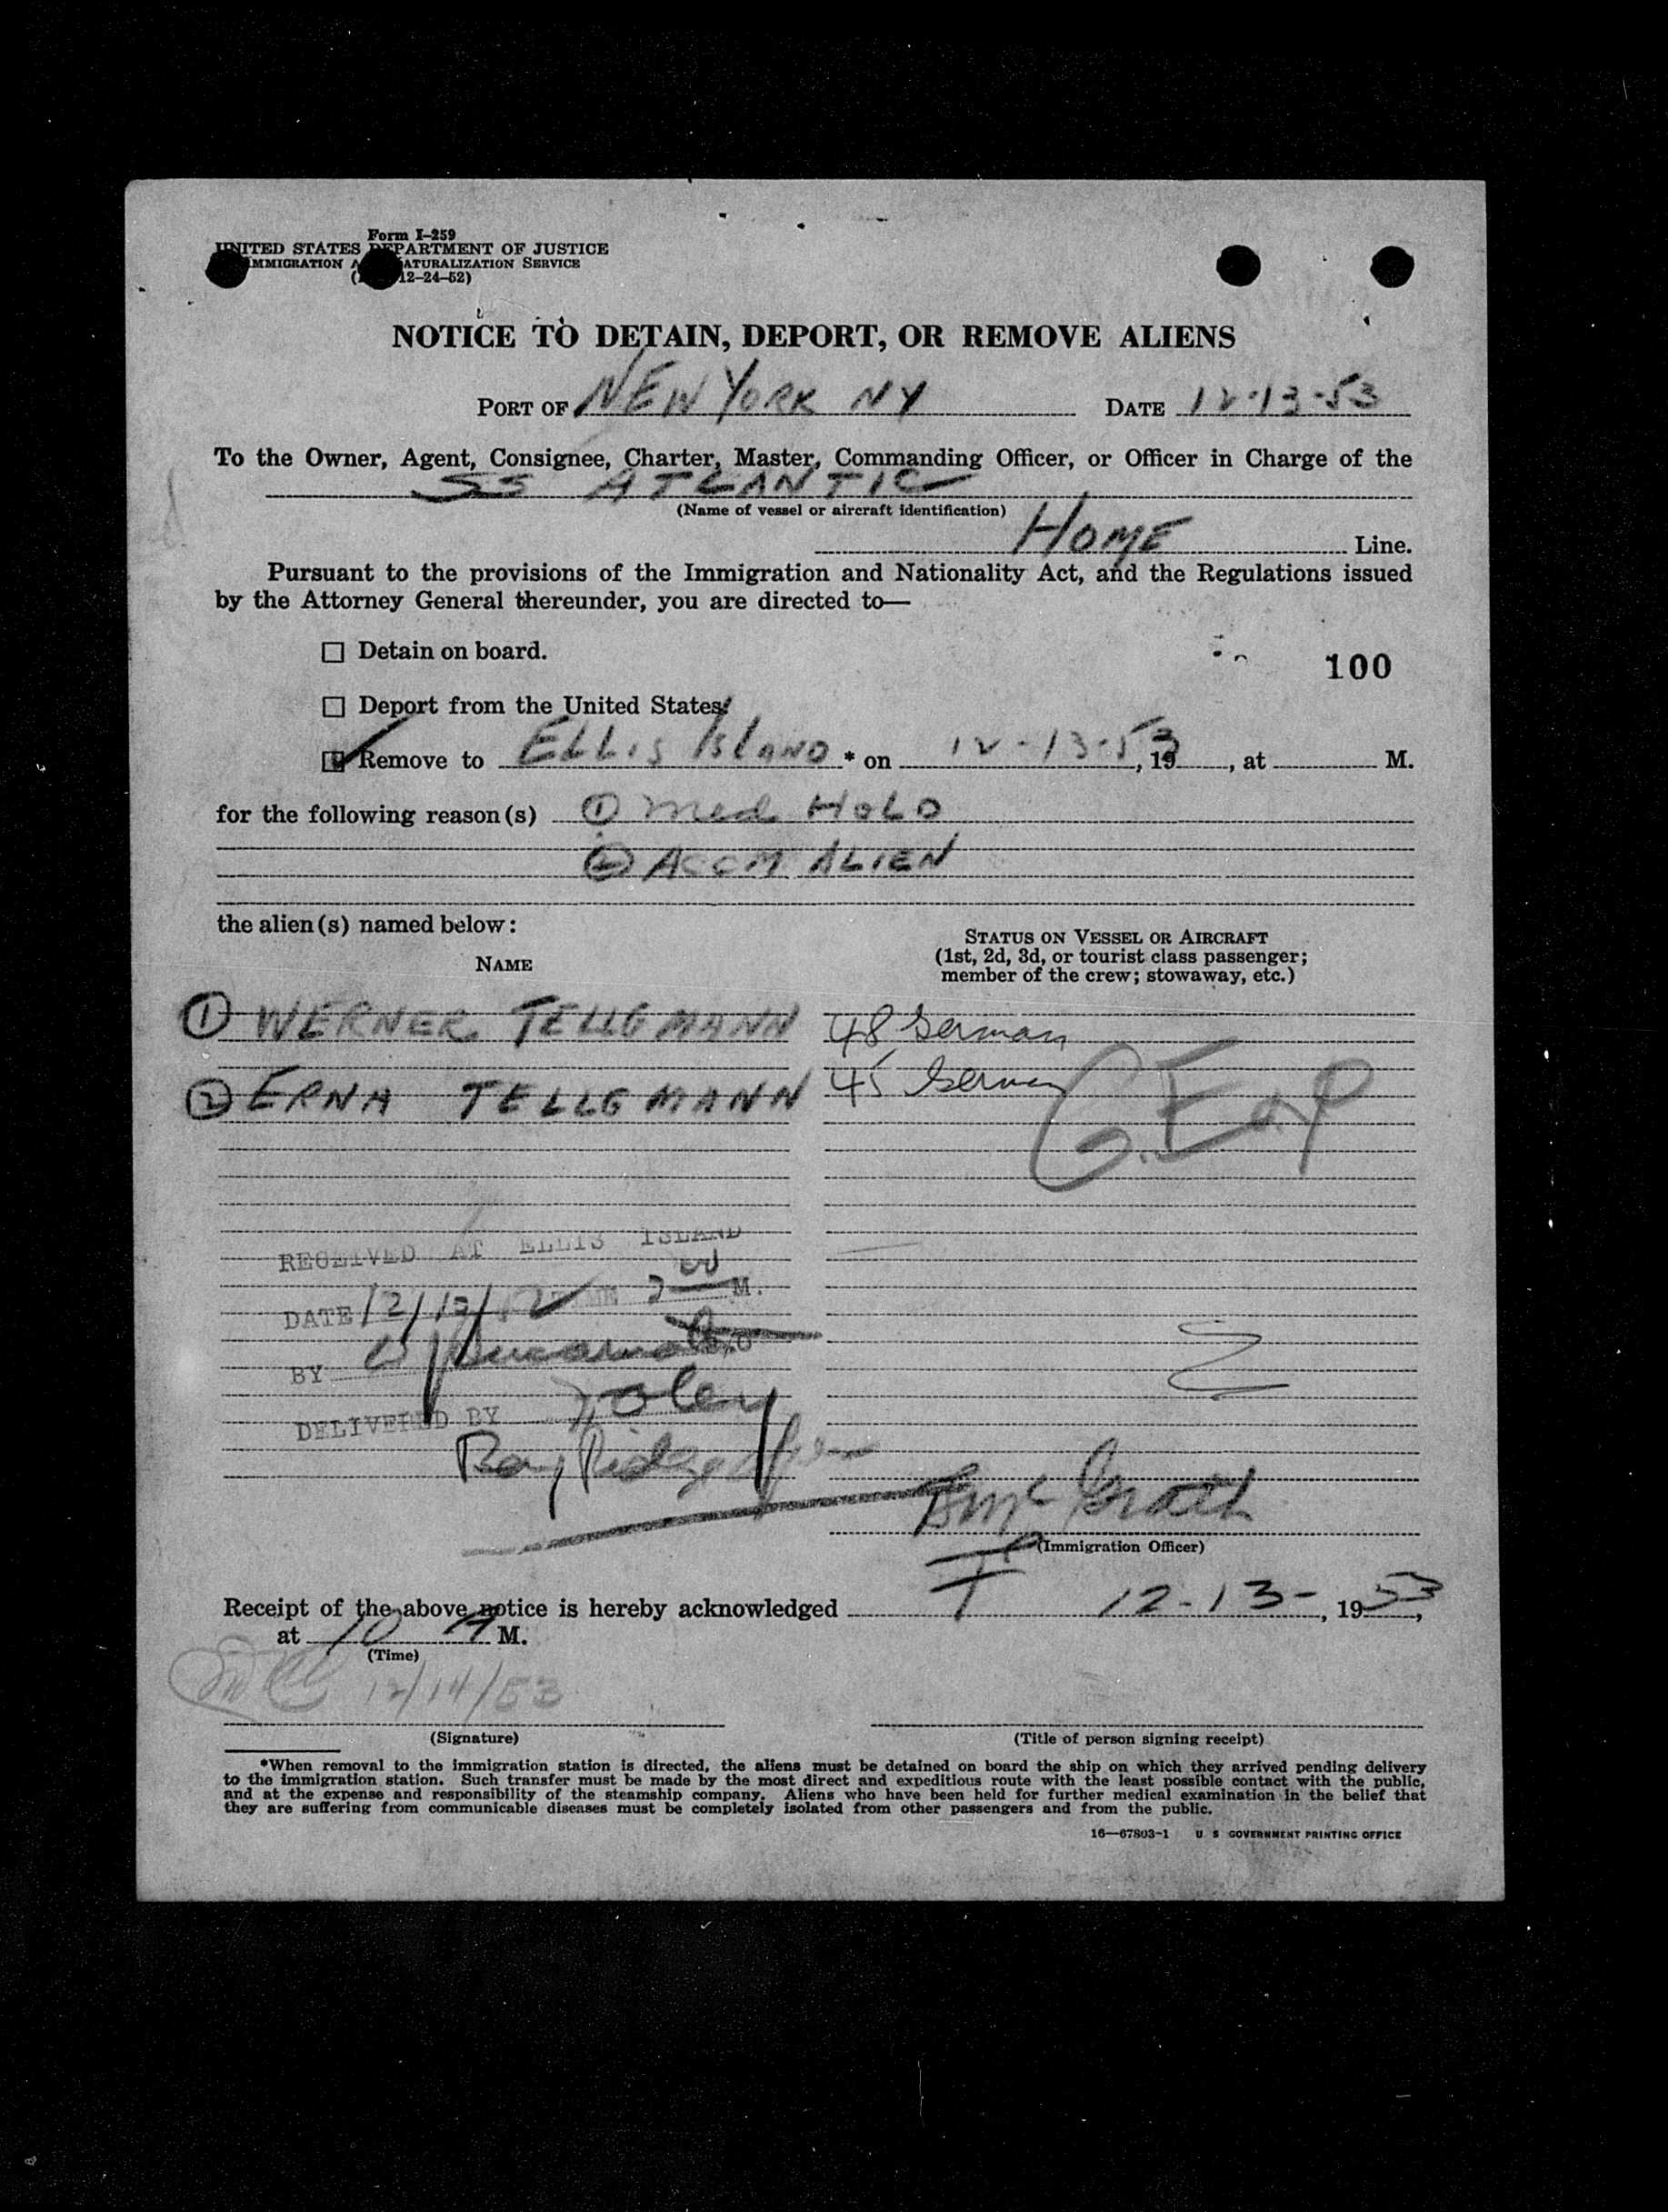 Form I-259
UNITED STATES DEPARTMENT OF JUSTICE
IMMIGRATION A NATURALIZATION SERVICE
( 12-24-52)
NOTICE TO DETAIN, DEPORT, OR REMOVE ALIENS
PORT OF NEW YORK NY DATE 12-13-53
To the Owner, Agent, Consignee, Charter, Master, Commanding Officer, or Officer in Charge of the
SS ATLANTIC
(Name of vessel or aircraft identification)
HOME Line.
Pursuant to the provisions of the Immigration and Nationality Act, and the Regulations issued
by the Attorney General thereunder, you are directed to—
☐ Detain on board.
100
☐ Deport from the United States.
☑ Remove to ELLIS ISLAND * on 12-13-53, 19 , at M.
for the following reason(s) ① Med HOLD
② ACCM ALIEN
the alien(s) named below:
STATUS ON VESSEL OR AIRCRAFT
(1st, 2d, 3d, or tourist class passenger;
member of the crew; stowaway, etc.)
NAME
① WERNER TELLGMANN 48 German
② ERNA TELLGMANN 45 German
RECEIVED AT ELLIS ISLAND
DATE 12/13/ M.
BY
DELIVERED BY Foley
Bay Ridge
McGrath
(Immigration Officer)
Receipt of the above notice is hereby acknowledged 12-13-, 1953,
at 10 A M.
(Time)
12/14/53
(Signature) (Title of person signing receipt)
*When removal to the immigration station is directed, the aliens must be detained on board the ship on which they arrived pending delivery
to the immigration station. Such transfer must be made by the most direct and expeditious route with the least possible contact with the public,
and at the expense and responsibility of the steamship company. Aliens who have been held for further medical examination in the belief that
they are suffering from communicable diseases must be completely isolated from other passengers and from the public.
16—67803-1 U S GOVERNMENT PRINTING OFFICE